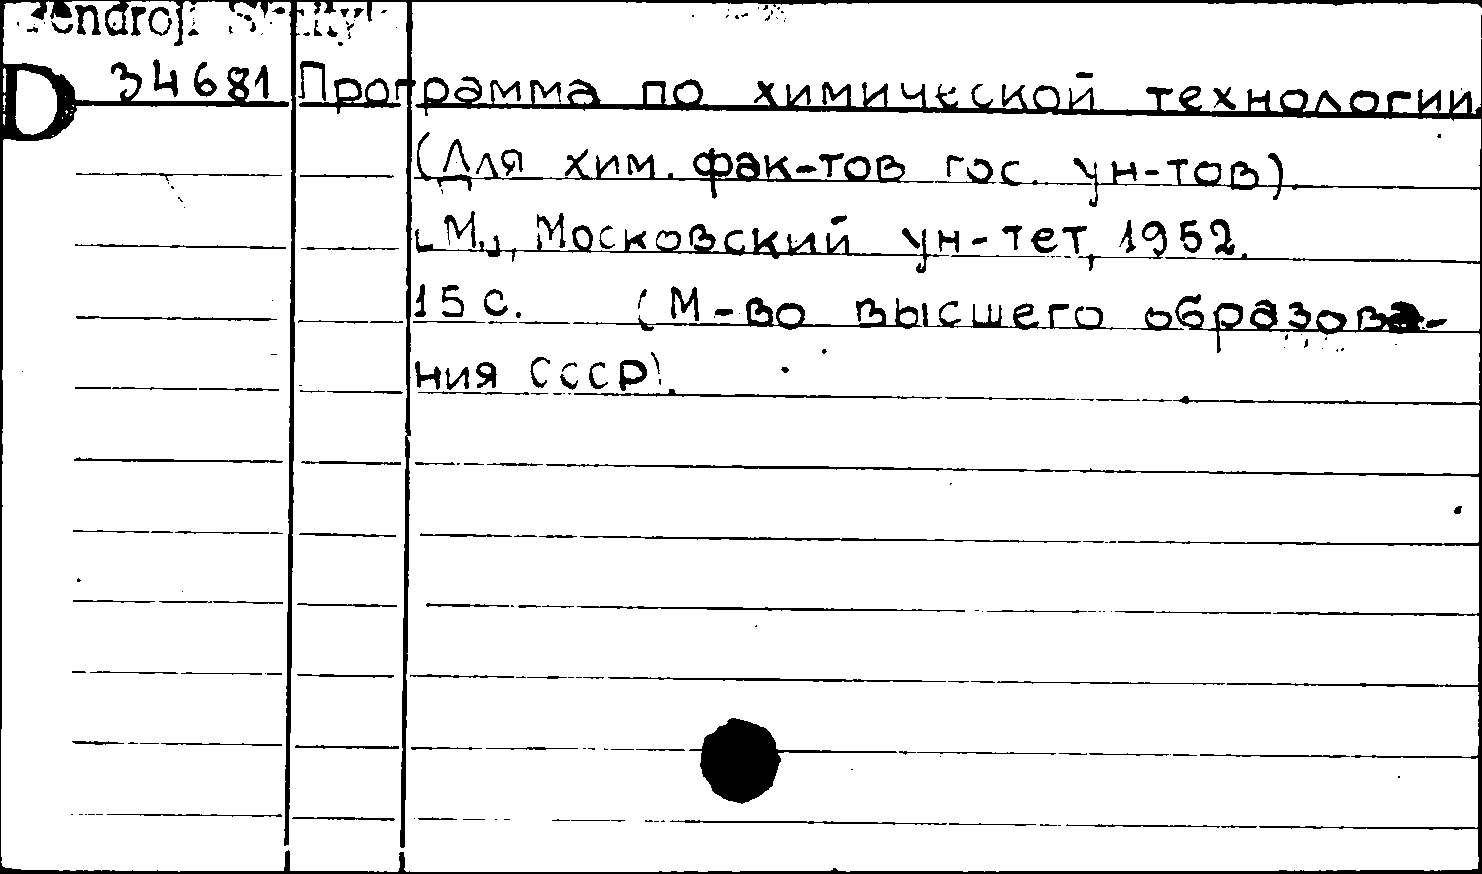 Bendroji
D 34681 Программа по химической технологии.
(Для хим. фак-тов гос. ун-тов).
[М.], Московский ун-тет, 1952.
15 с. (М-во высшего образова-
ния СССР).